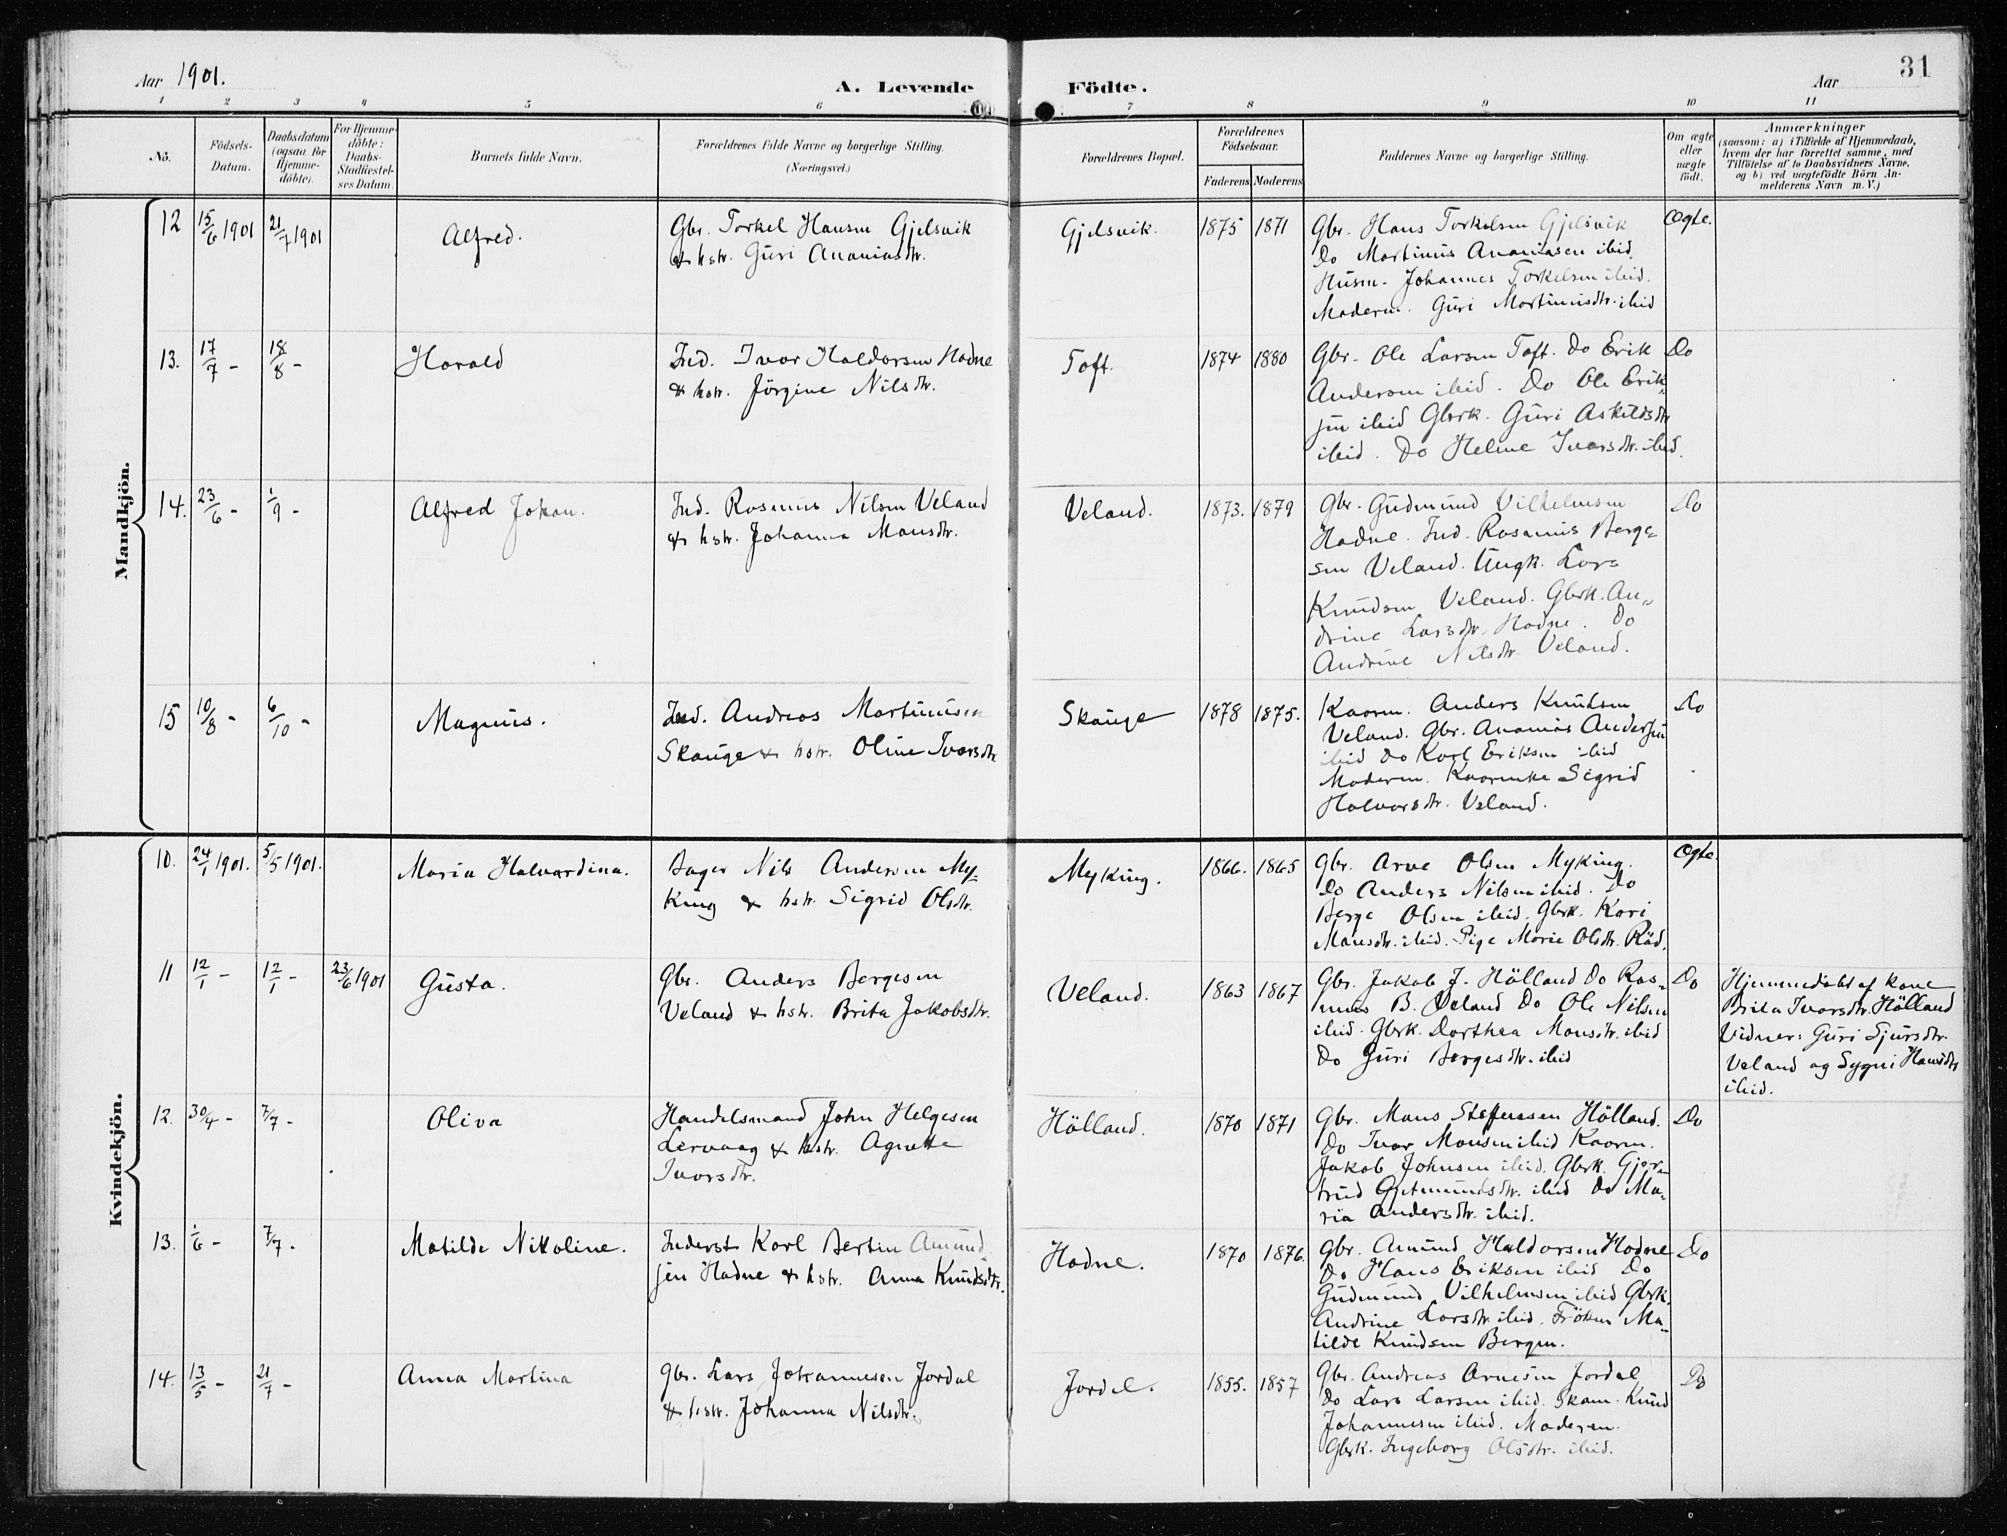 Aar 1901.
A. Levende
Födte.
Aar
31
1 2 3 4 5 6 7 8 9 10 11
No.
Födsels-
Datum.
Daabsdatum
(ogsaa for
Hjemme-
döbte).
For Hjemme-
döbte:
Daabs-
Stadfæstel-
ses Datum.
Barnets fulde Navn.
Forældrenes fulde Navne og borgerlige Stilling.
(Næringsvei.)
Forældrenes Bopæl.
Forældrenes
Födselsaar.
Faderens Moderens
Faddernes Navne og borgerlige Stilling.
Om ægte
eller
uægte
födt.
Anmærkninger
(saasom: a) i Tilfælde af Hjemmedaab,
hvem der har forrettet samme, med
Tilföielse af to Daabsvidners Navne,
og b) ved uægtefödte Börn An-
melderens Navn m. V.)
Mandkjön.
12 15/6 1901 21/7 1901
Alfred.
Gbr. Torkel Hansen Gjelsvik
& hstr. Guri Ananiasdtr.
Gjelsvik.
1875 1871
Gbr. Hans Torkelsen Gjelsvik
Do Martinus Ananiasen ibid.
Husm. Johannes Torkelsen ibid.
Moderen. Guri Martinusdtr. ibid
Ægte.
13. 17/7 - 18/8 -
Harald
Ind. Ivar Haldorsen Hadne
& hstr. Jörgine Nilsdtr.
Toft.
1874 1880
Gbr. Ole Larsen Toft. Do Erik
Andersen ibid. Do Ole Erik-
sen ibid Gbrk. Guri Askildsdtr
ibid. Do Helene Ivarsdtr. ibid.
Do
14. 23/6 - 1/9 -
Alfred Johan.
Ind. Rasmus Nilsen Veland
& hstr. Johanna Monsdtr.
Veland.
1873. 1879
Gbr. Gudmund Vilhelmsen
Hadne. Ind. Rasmus Berge-
sen Veland. Ungk. Lars
Knudsen Veland. Gbrk. An-
drine Larsdtr. Hadne. Do
Andrine Nilsdtr. Veland.
Do
15 10/8 - 6/10 -
Magnus.
Ind. Andreas Martinusen
Skauge & hstr. Oline Ivarsdtr
Skauge
1878 1875.
Kaarm. Anders Knudsen
Veland. Gbr. Ananias Andersen
ibid Do Karl Eriksen ibid
Moderen. Kaarenke Sigrid
Halvorsdtr. Veland.
Do
Kvindekjön.
10. 24/1 1901. 5/5 1901.
Maria Halvardina.
Bager Nils Andersen My-
king & hstr. Sigrid Olsdtr.
Myking.
1866. 1865
Gbr. Arve Olsen Myking.
Do Anders Nilsen ibid. Do
Berge Olsen ibid. Gbrk. Kari
Monsdtr. ibid. Pige Marie Olsdtr. Räd.
Ægte.
11 12/1 - 12/1 - 23/6 1901
Gusta.
Gbr. Anders Bergesen
Veland & hstr. Brita Jakobsdtr.
Veland.
1863 1867
Gbr. Jakob J. Hölland Do Ras-
mus B. Veland Do Ole Nilsen
ibid. Gbrk. Dorthea Monsdtr. ibid
Do Guri Bergesdtr. ibid
Do
Hjemmedöbt af kone
Brita Ivarsdtr. Hölland
Vidner: Guri Sjursdtr.
Veland og Sygni Hansdtr
ibid.
12. 30/4 - 7/7 -
Oliva
Handelsmand John Helgesen
Lervaag & hstr. Agnette
Ivarsdtr.
Hölland.
1870 1871
Gbr. Mons Steffensen Hölland.
Do Ivar Monsen ibid Kaarm.
Jakob Johnsen ibid. Gbrk. Gjer-
trud Gjetmundsdtr. ibid Do Ma-
ria Andersdtr. ibid.
Do
13. 1/6 - 7/7 -
Matilde Nikoline.
Inderst Karl Bertin Amund-
sen Hadne & hstr. Anna Knudsdtr.
Hadne.
1870 1876.
Gbr. Amund Haldorsen Hadne
Do Hans Eriksen ibid Do
Gudmund Vilhelmsen ibid Gbrk.
Andrine Larsdtr ibid. Fröken Ma-
tilde Knudsen Bergen.
Do
14. 13/5 - 21/7 -
Anna Martina
Gbr. Lars Johannesen Jordal
& hstr. Johanna Nilsdtr.
Jordal.
1855. 1857
Gbr. Andreas Arnesen Jordal
Do Lars Larsen ibid. Skom. Knud
Johannesen ibid. Moderen.
Gbrk. Ingeborg Olsdtr. ibid.
Do